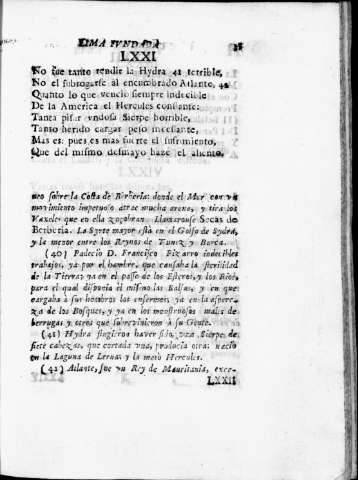 LIMA FUNDADA
LXXI
No fue tanto rendir la Hydra 41 terrible,
No el subrogarse al encumbrado Atlante, 42
Quanto lo que venciò siempre indecible
De la America el Hercules constante:
Tanta pisar undosa Sierpe horrible,
Tanto herido cargar peso incessante,
Mas es: pues es mas fuerte el sufrimiento,
Que del mismo desmayo haze el aliento.
neo sobre la Costa de Berberìa: donde el Mar con un
movimiento impetuoso atrae mucha arena, y tira los
Vaxeles que en ella zozobran. Llamaronse Secas de
Berberìa. La Syrte mayor està en el Golfo de Sydra,
y la menor entre los Reynos de Tunez y Barca.
(40) Padeciò D. Francisco Pizarro indecibles
trabajos, ya por el hambre que causaba la sterilidad
de la Tierra; ya en el passo de los Esteros, y los Rios,
para el qual disponia èl mismo las Balsas, y en que
cargaba à sus hombros los enfermos; ya en la aspere-
za de los Bosques, y ya en los monstruosos males de
berrugas y otros que sobrevinieron à su Gente.
(41) Hydra fingieron haver sido una Sierpe de
siete cabezas, que cortada una, producia otra: naciò
en la Laguna de Lerna: y la matò Hercules.
(42) Atlante, fue un Rey de Mauritania, exce-
LXXII